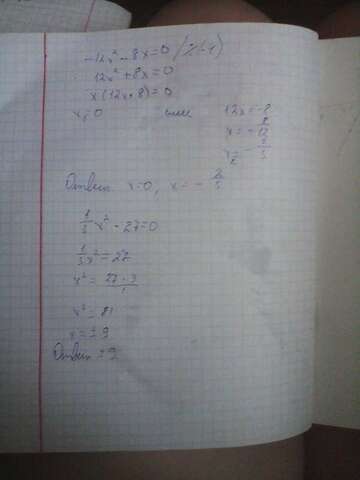 -12x² - 8x = 0 / ·(-1)
12x² + 8x = 0
x(12x + 8) = 0
x₁ = 0 или 12x = -8
x = - 8/12
x₂ = - 2/3
Ответ x = 0, x = - 2/3
1/3 x² - 27 = 0
1/3 x² = 27
x² = 27 · 3 / 1
x² = 81
x = ± 9
Ответ ± 9